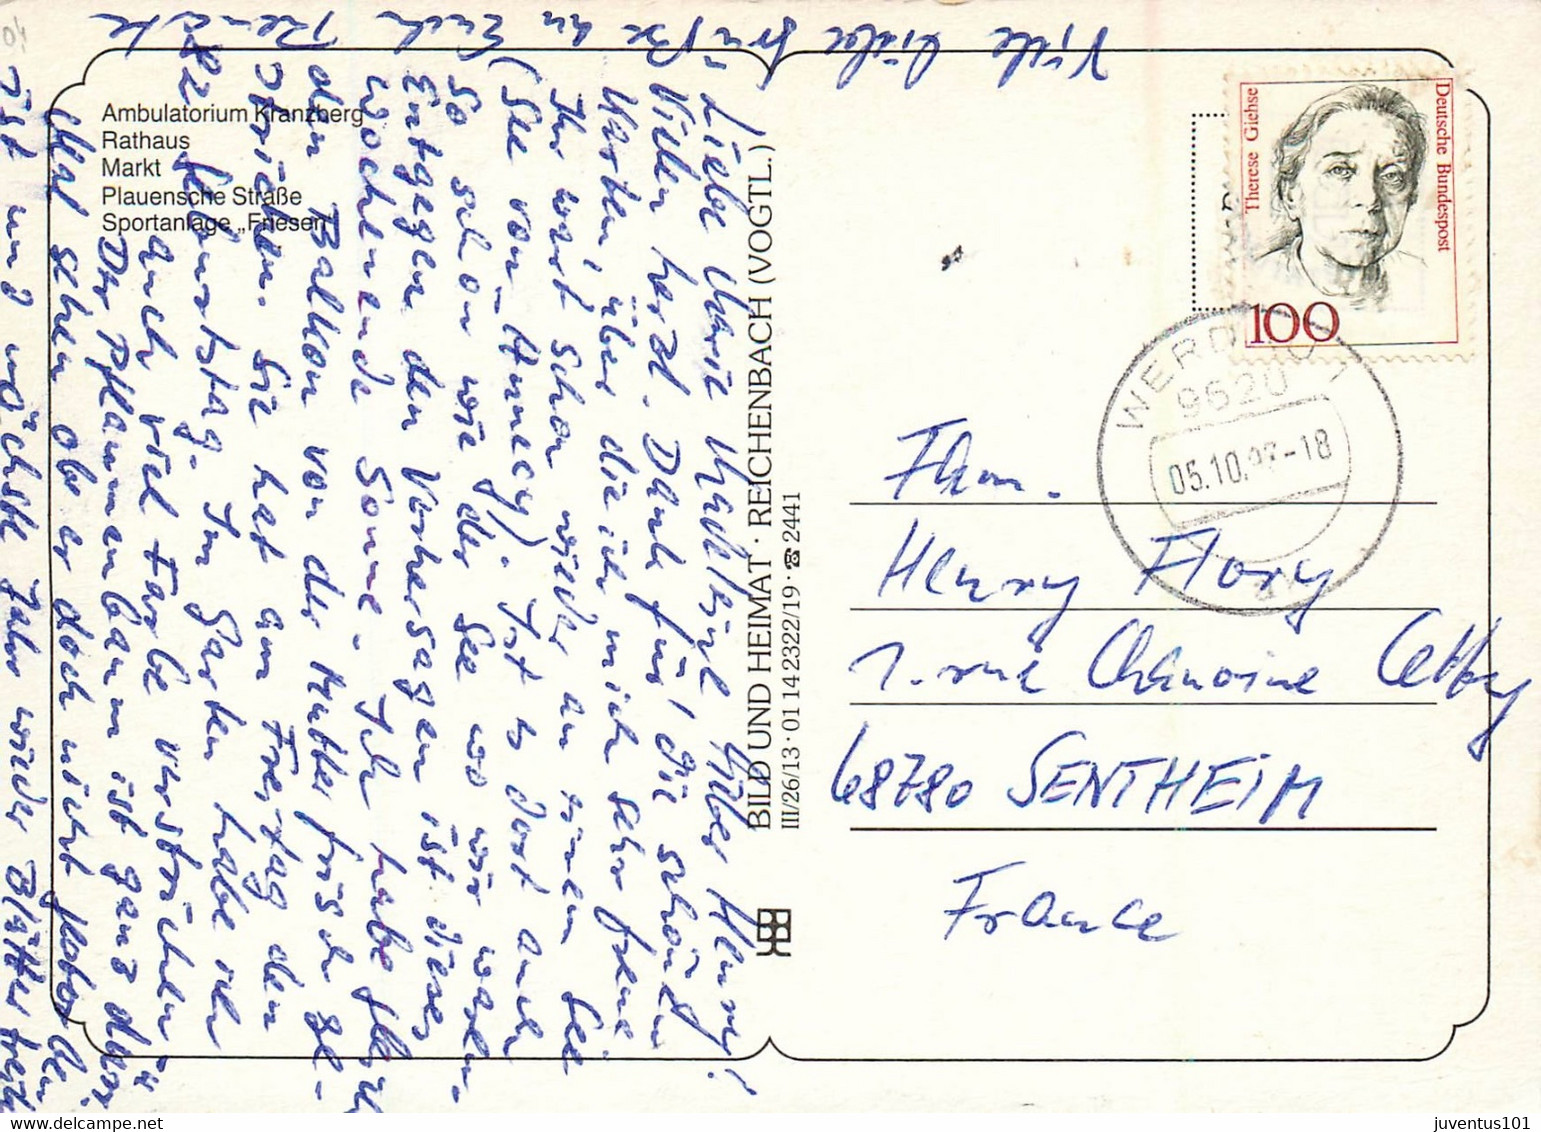 Ambulatorium Kranzberg
Rathaus
Markt
Plauensche Straße
Sportanlage „Friesen“
BILD UND HEIMAT · REICHENBACH (VOGTL.)
III/26/13 · 01 14 2322/19 · ☎ 2441
Therese Giehse
Deutsche Bundespost
100
WERDAU 1
9620
05.10.97-18
Fam.
Henry Flory
1. rue Chanoine Cetty
68780 SENTHEIM
France
Liebe Marie Madleine lieber Henry!
Vielen herzl. Dank für die schönen
Karten, über die ich mich sehr freue.
Ihr wart schon wieder an einem See
(See von Annecy). Ist es dort auch
so schön wie der See wo wir waren.
Entgegen den Vorhersagen ist dieses
Wochenende Sonne. Ich habe
den Balkon von der Mutter frisch ge-
strichen. Sie hat am Freitag den
82. Geburtstag. Im Garten habe ich
auch viel Farbe verstrichen
Der Pflaumenbaum ist ganz dürr
Mal sehen ob er doch nicht
ist und nächstes Jahr wieder Blätter
Viele liebe Grüße an Euch Renate
juventus101